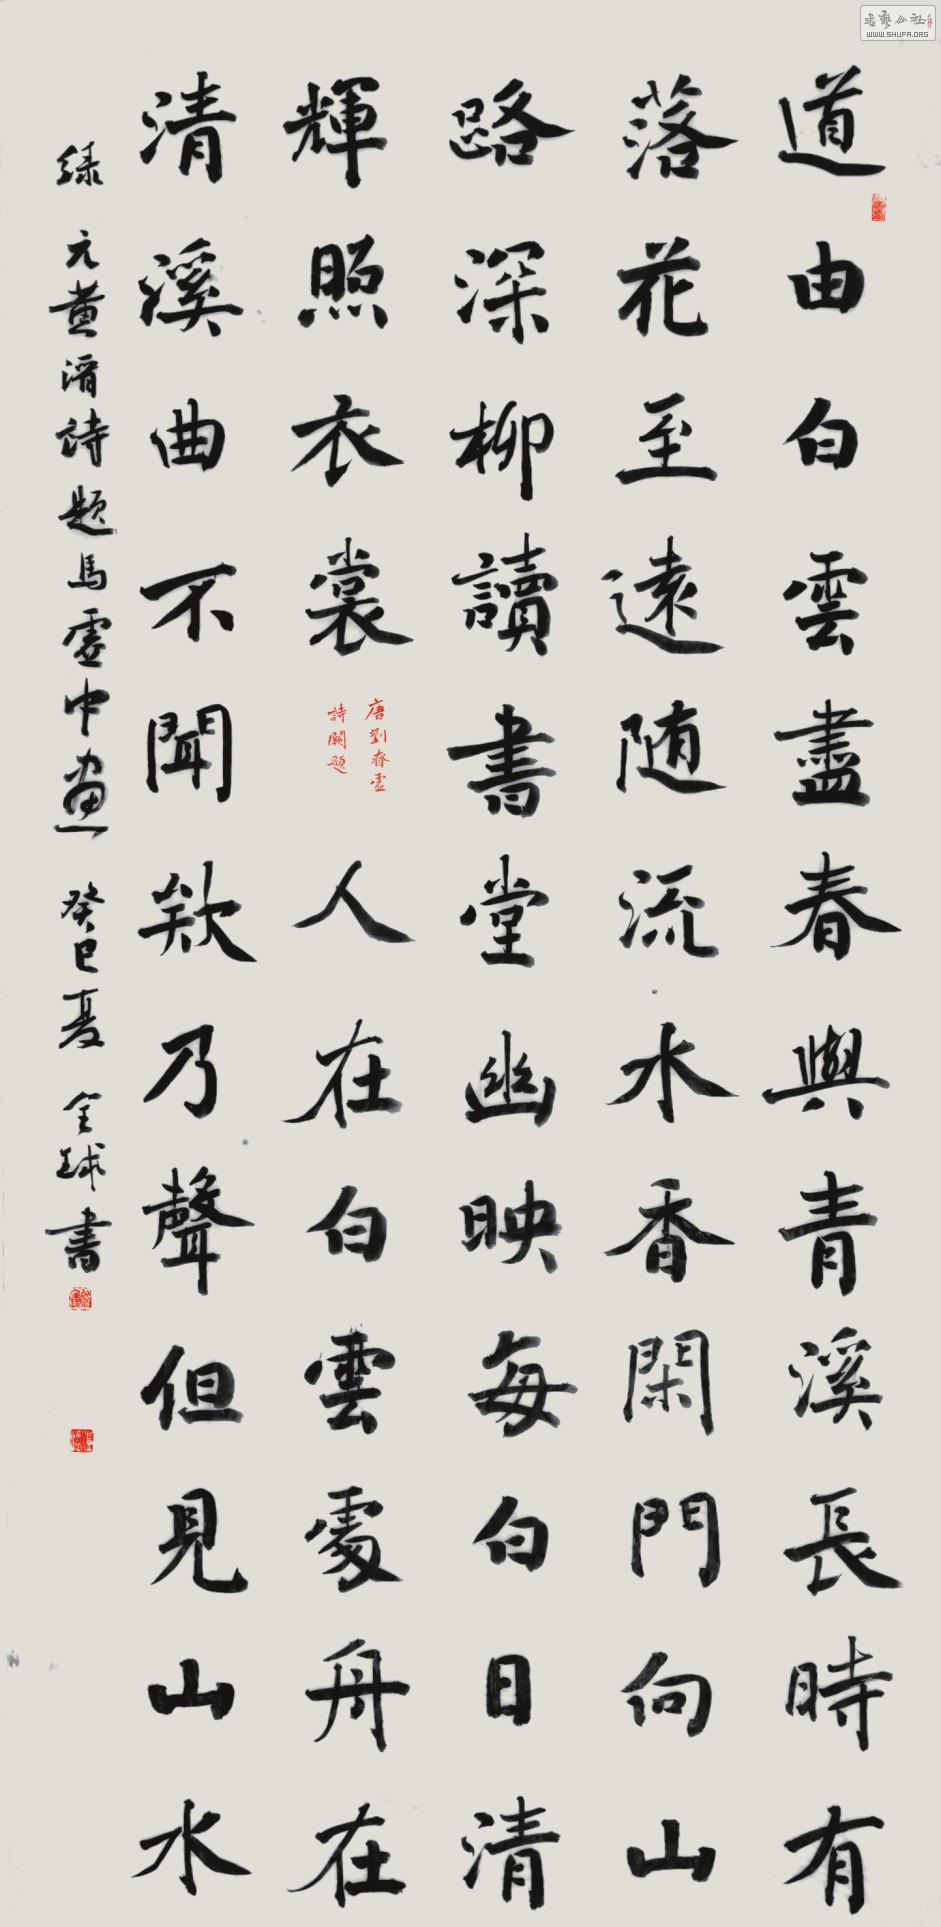 道由白雲盡春與青溪長時有
落花至遠随流水香閑門向山
路深柳讀書堂幽映每白日清
輝照衣裳
唐劉眘虛
詩闕題
人在白雲處舟在
清溪曲不聞欸乃聲但見山水
綠 元黃溍詩題馬虛中畫 癸巳夏 全球書
書藝公社
WWW.SHUFA.ORG